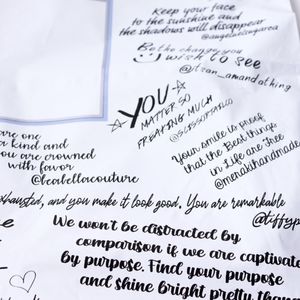 Keep your face
to the sunshine and
the shadows will disappear
Be the change you
wish to see
YOU
MATTER SO
FREAKING MUCH
are one
a kind and
you are crowned
with favor
@leabellacouture
Your smile is proof
that the Best things
in Life are Free
@menakihandmade
exhausted, and you make it look good. You are remarkable
@tiffyp
We won't be distracted by
comparison if we are captivate
by purpose. Find your purpose
and shine bright pretty than